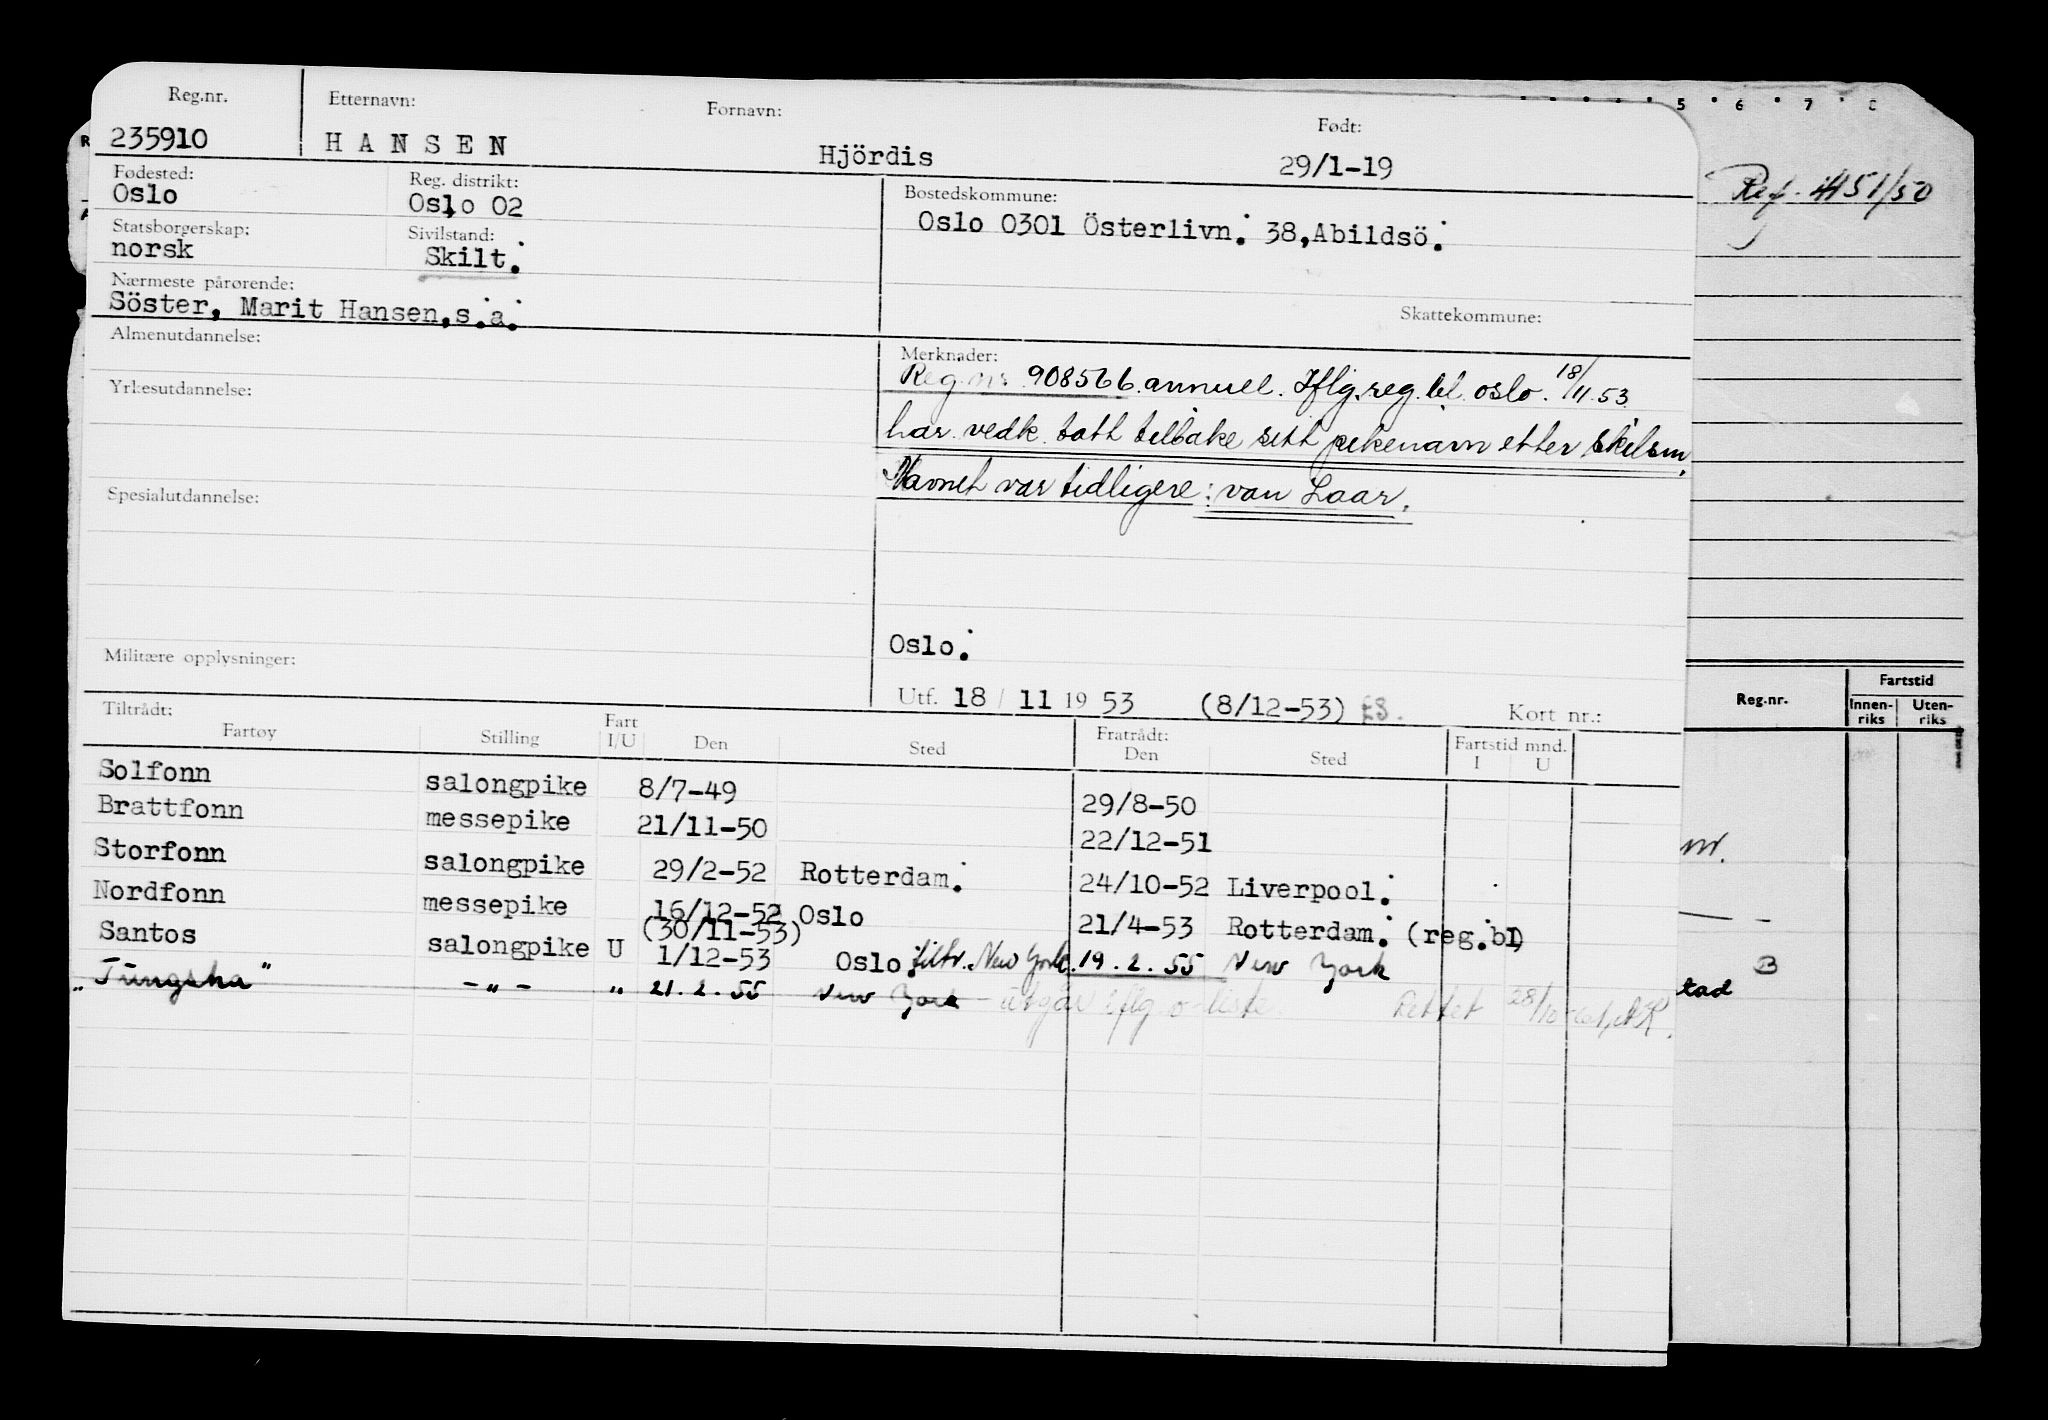 Reg.nr. Etternavn: Fornavn: Født:
235910 HANSEN Hjördis 29/1-19
Fødested: Reg. distrikt: Bostedskommune:
Oslo Oslo 02 Oslo 0301 Österlivn. 38,Abildsö.
Statsborgerskap: Sivilstand:
norsk Skilt.
Nærmeste pårørende:
Söster, Marit Hansen,s.a.
Skattekommune:
Almenutdannelse:
Yrkesutdannelse:
Spesialutdannelse:
Militære opplysninger:
Merknader:
Reg. nr 908566 annuel. Iflg. reg. bl. oslo. 18/11.53.
har vedk. tatt tilbake sitt pikenavn etter skilsm.
Navnet var tidligere: van Laar.
Oslo.
Utf. 18 / 11 19 53 (8/12-53) Kort nr.:
Tiltrådt: Fratrådt:
Fartøy Stilling Fart I/U Den Sted Den Sted Fartstid mnd. I U
Solfonn salongpike 8/7-49 29/8-50
Brattfonn messepike 21/11-50 22/12-51
Storfonn salongpike 29/2-52 Rotterdam. 24/10-52 Liverpool.
Nordfonn messepike 16/12-52 Oslo 21/4-53 Rotterdam. (reg.bl)
(30/11-53)
Santos salongpike U 1/12-53 Oslo. tiltr. New York. 19.2.55 New York
"Tungsha" -"- " 21.2.55 New York - utgår iflg o-liste. Rettet
5 6 7
Ref. 4151/50
Reg.nr. Fartstid
Innen-riks Uten-riks
nr.
B
tad